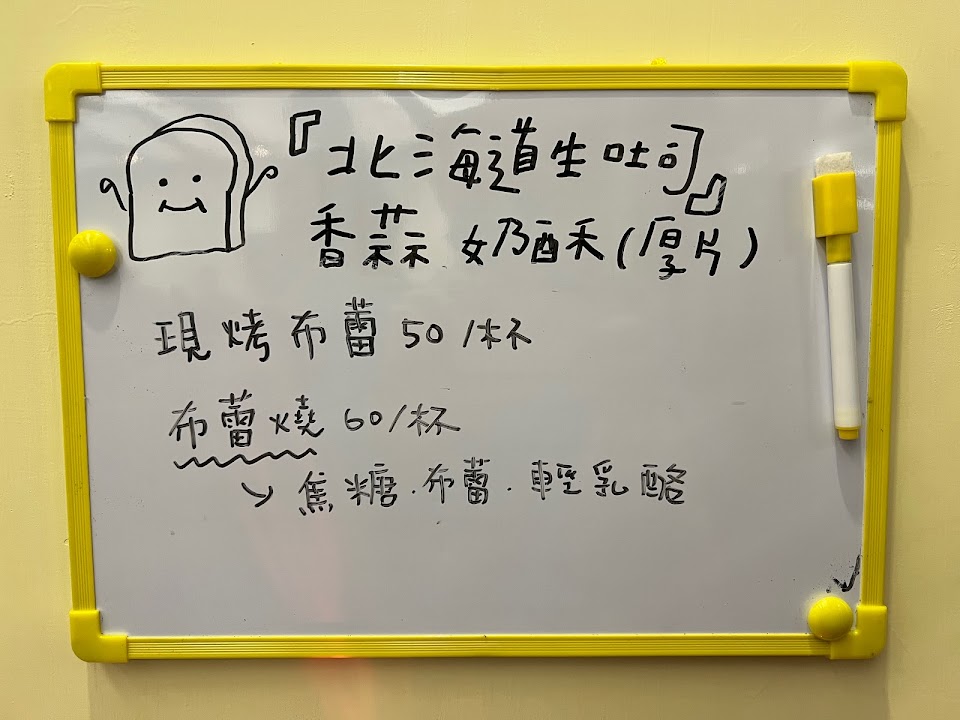 『北海道生吐司』
香蒜 奶酥(厚片)
現烤布蕾 50/杯
布蕾燒 60/杯
焦糖.布蕾.輕乳酪